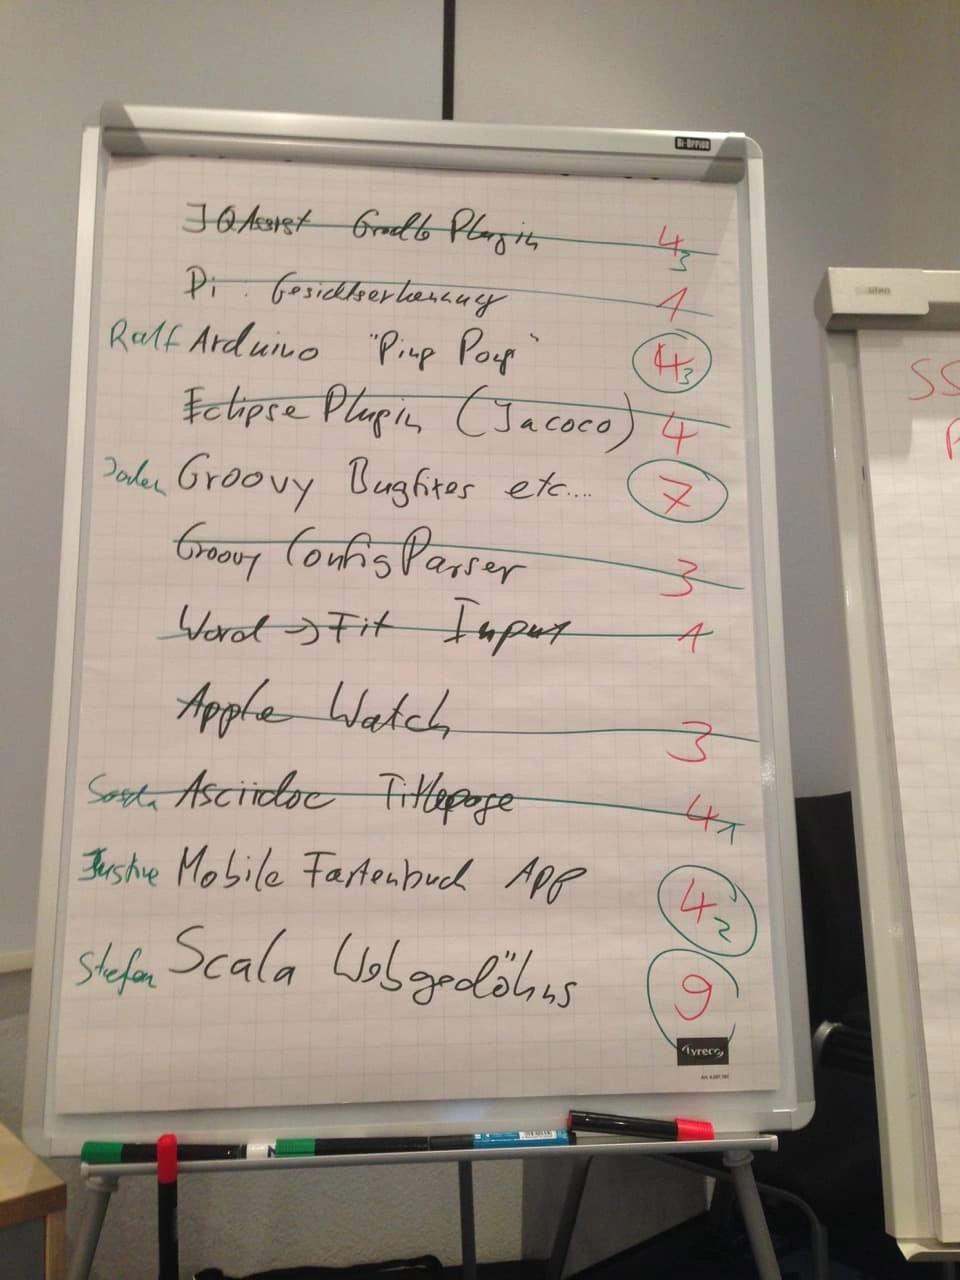 Bi-Office
JQAssist Gradle Plugin 4 3
Pi: Gesichtserkennung 1
Ralf Arduino "Ping Pong" 4 3
Eclipse Plugin (Jacoco) 4
Groovy Bugfixes etc.... 7
Groovy ConfigParser 3
Word → Fit Input 1
Apple Watch 3
Asciidoc Titlepage 4 1
Mobile Fahrtenbuch App 4 2
Stefan Scala Webgedöhns 9
Lyreco
SS